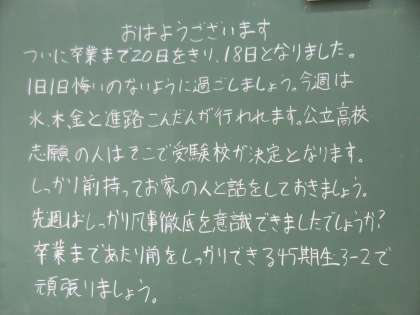 おはようございます
ついに卒業まで20日をきり、18日となりました。
1日1日悔いのないように過ごしましょう。今週は
水、木、金と進路こんだんが行われます。公立高校
志願の人はそこで受験校が決定となります。
しっかり前持ってお家の人と話をしておきましょう。
先週はしっかり凡事徹底を意識できましたでしょうか?
卒業まであたり前をしっかりできる45期生3-2で
頑張りましょう。